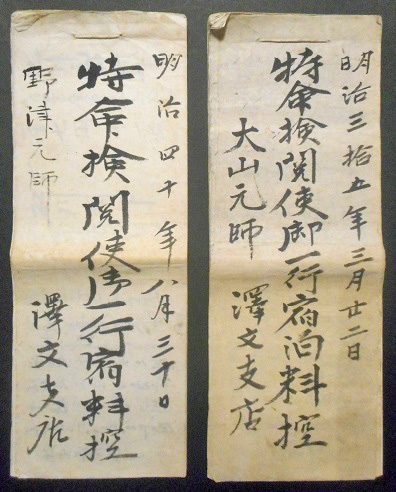 明治三拾五年三月廿二日
特命検閲使御一行宿泊料控
大山元帥
澤文支店
明治四十年八月三十日
特命検閲使御一行宿料控
野津元帥
澤文支店